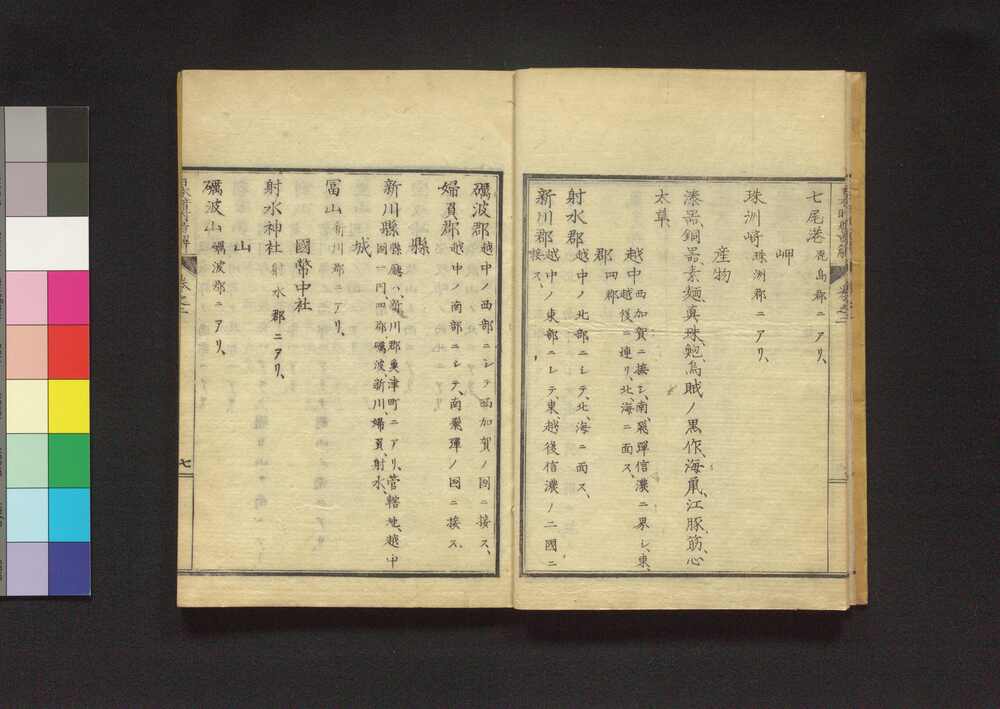 七尾港 鹿島郡ニアリ、
岬
珠洲崎 珠洲郡ニアリ、
産物
漆器、銅器、素麺、真珠、鮑、烏賊ノ黒作、海鼠、江豚筋、心
太草、
越中 西加賀ニ接シ、南、飛騨信濃ニ界シ、東、
越後ニ連リ、北海ニ面ス、
郡 四郡
射水郡 越中ノ北部ニシテ、北、海ニ面ス、
新川郡 越中ノ東部ニシテ、東越後信濃ノ二國ニ
接ス、
礪波郡 越中ノ西部ニシテ西加賀ノ囶ニ接ス、
婦負郡 越中ノ南部ニシテ、南飛騨ノ囶ニ接ス、
縣
新川縣 縣廳ハ、新川郡魚津町ニアリ、管轄地、越中
囶一円、四郡、礪波、新川、婦負、射水、
城
冨山 新川郡ニアリ、
國幣中社
射水神社 射水郡ニアリ、
山
礪波山 礪波郡ニアリ、
卷之二
七